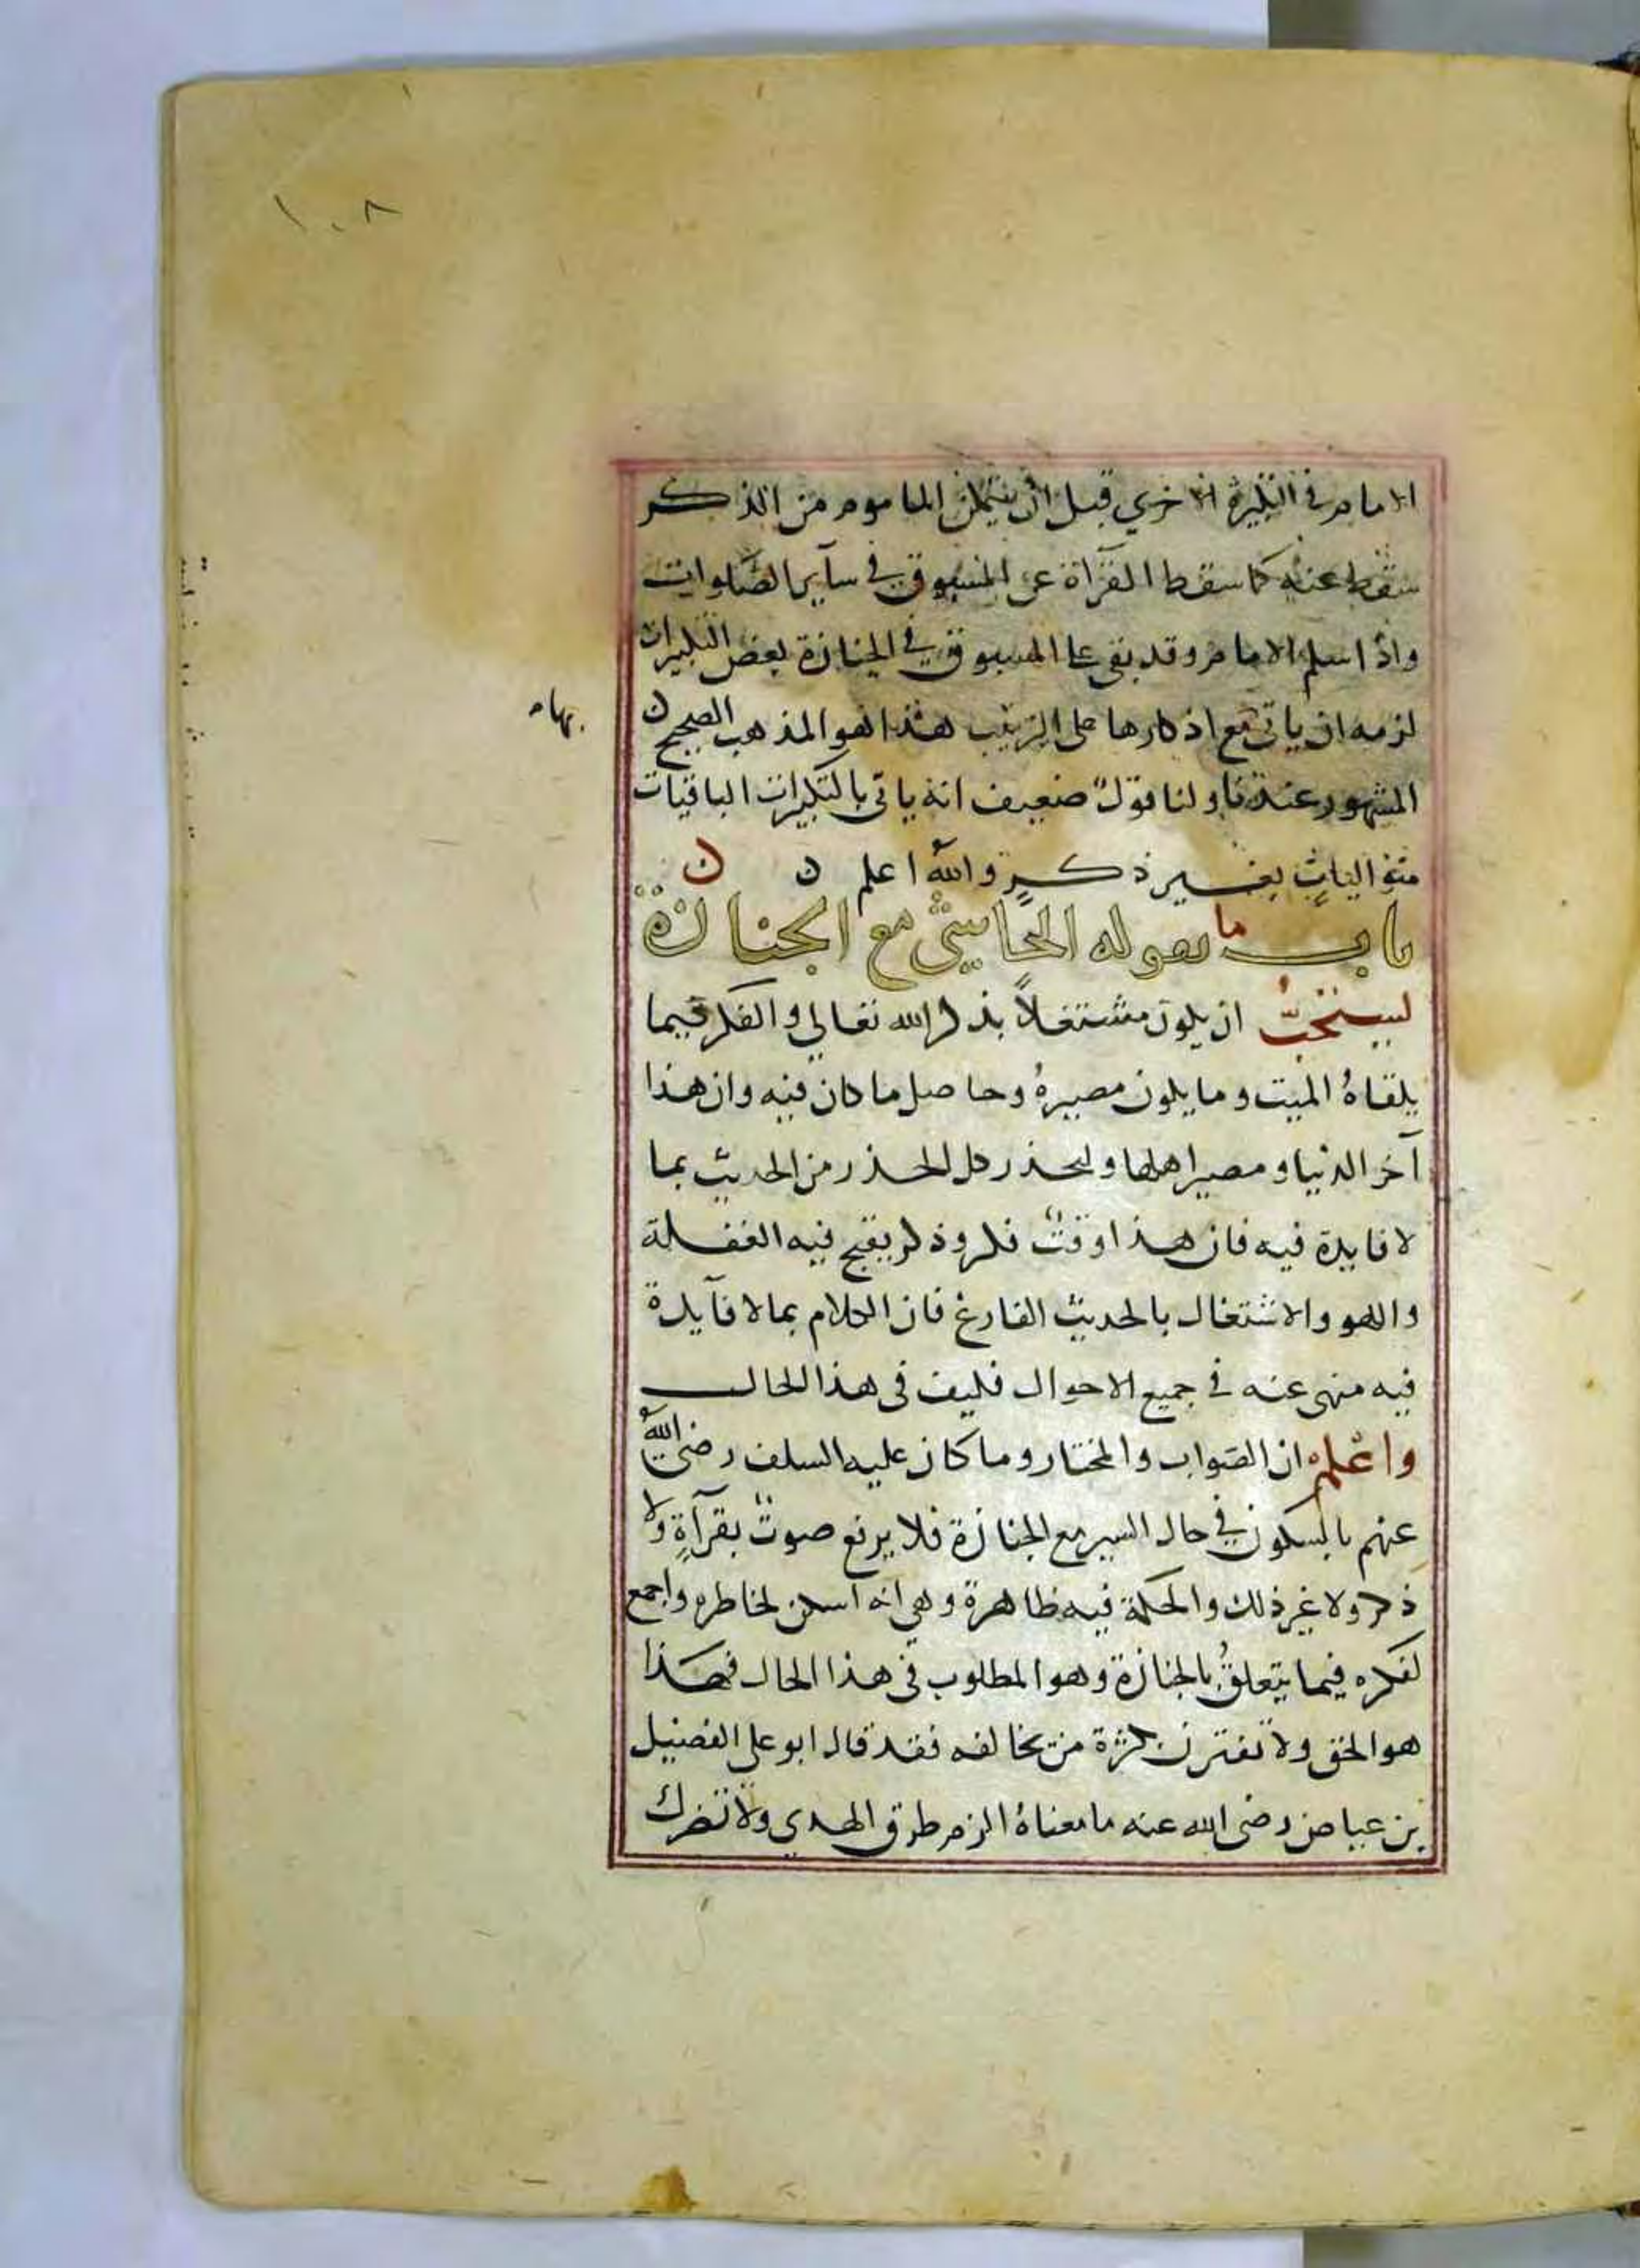 ١٠٨
الامام في التكبيرة الاخري قبل ان يتمكن الماموم من الذكر
سقط عنه كما سقط القرآة عن المسبوق في سآير الصلوات
واذا سلم الامام وقد بقى على المسبوق في الجنازة بعض التكبيرات
لزمه ان ياتى مع اذكارها على الترتيب هذا هو المذهب الصحيح ن
بها م
المشهور عندنا ولنا قول ضعيف انه ياتى بالتكبيرات الباقيات
متواليات بغير ذكر والله اعلم ن ن
باب ما يقوله الماشي مع الجنازة
يستحب ان يكون مشتغلاً بذكر الله تعالي والفكر فيما
يلقاهُ الميت وما يكون مصيرهُ وحاصل ما كان فيه وان هذا
آخر الدنيا ومصير اهلها وليحذر كل الحذر من الحديث بما
لا فايدة فيه فان هذا وقت فكر وذكر يقبح فيه الغفلة
واللهو والاشتغال بالحديث الفارغ فان الكلام بما لا فآيدة
فيه منهى عنه في جميع الاحوال فكيف في هذا الحال
واعلم ان الصواب والمختار وما كان عليه السلف رضى الله
عنهم بالسكون في حال السير مع الجنازة فلا يرفع صوت بقرآةٍ ولا
ذكر ولا غير ذلك والحكمة فيه ظاهرة وهي انه اسكن لخاطره واجمع
لفكره فيما يتعلقُ بالجنازة وهو المطلوب في هذا الحال فهذا
هو الحق ولا تغترن بكثرة من يخالفه فقد قال ابو على الفضيل
بن عياض رضى الله عنه ما معناهُ الزم طرق الهدي ولا تضرك